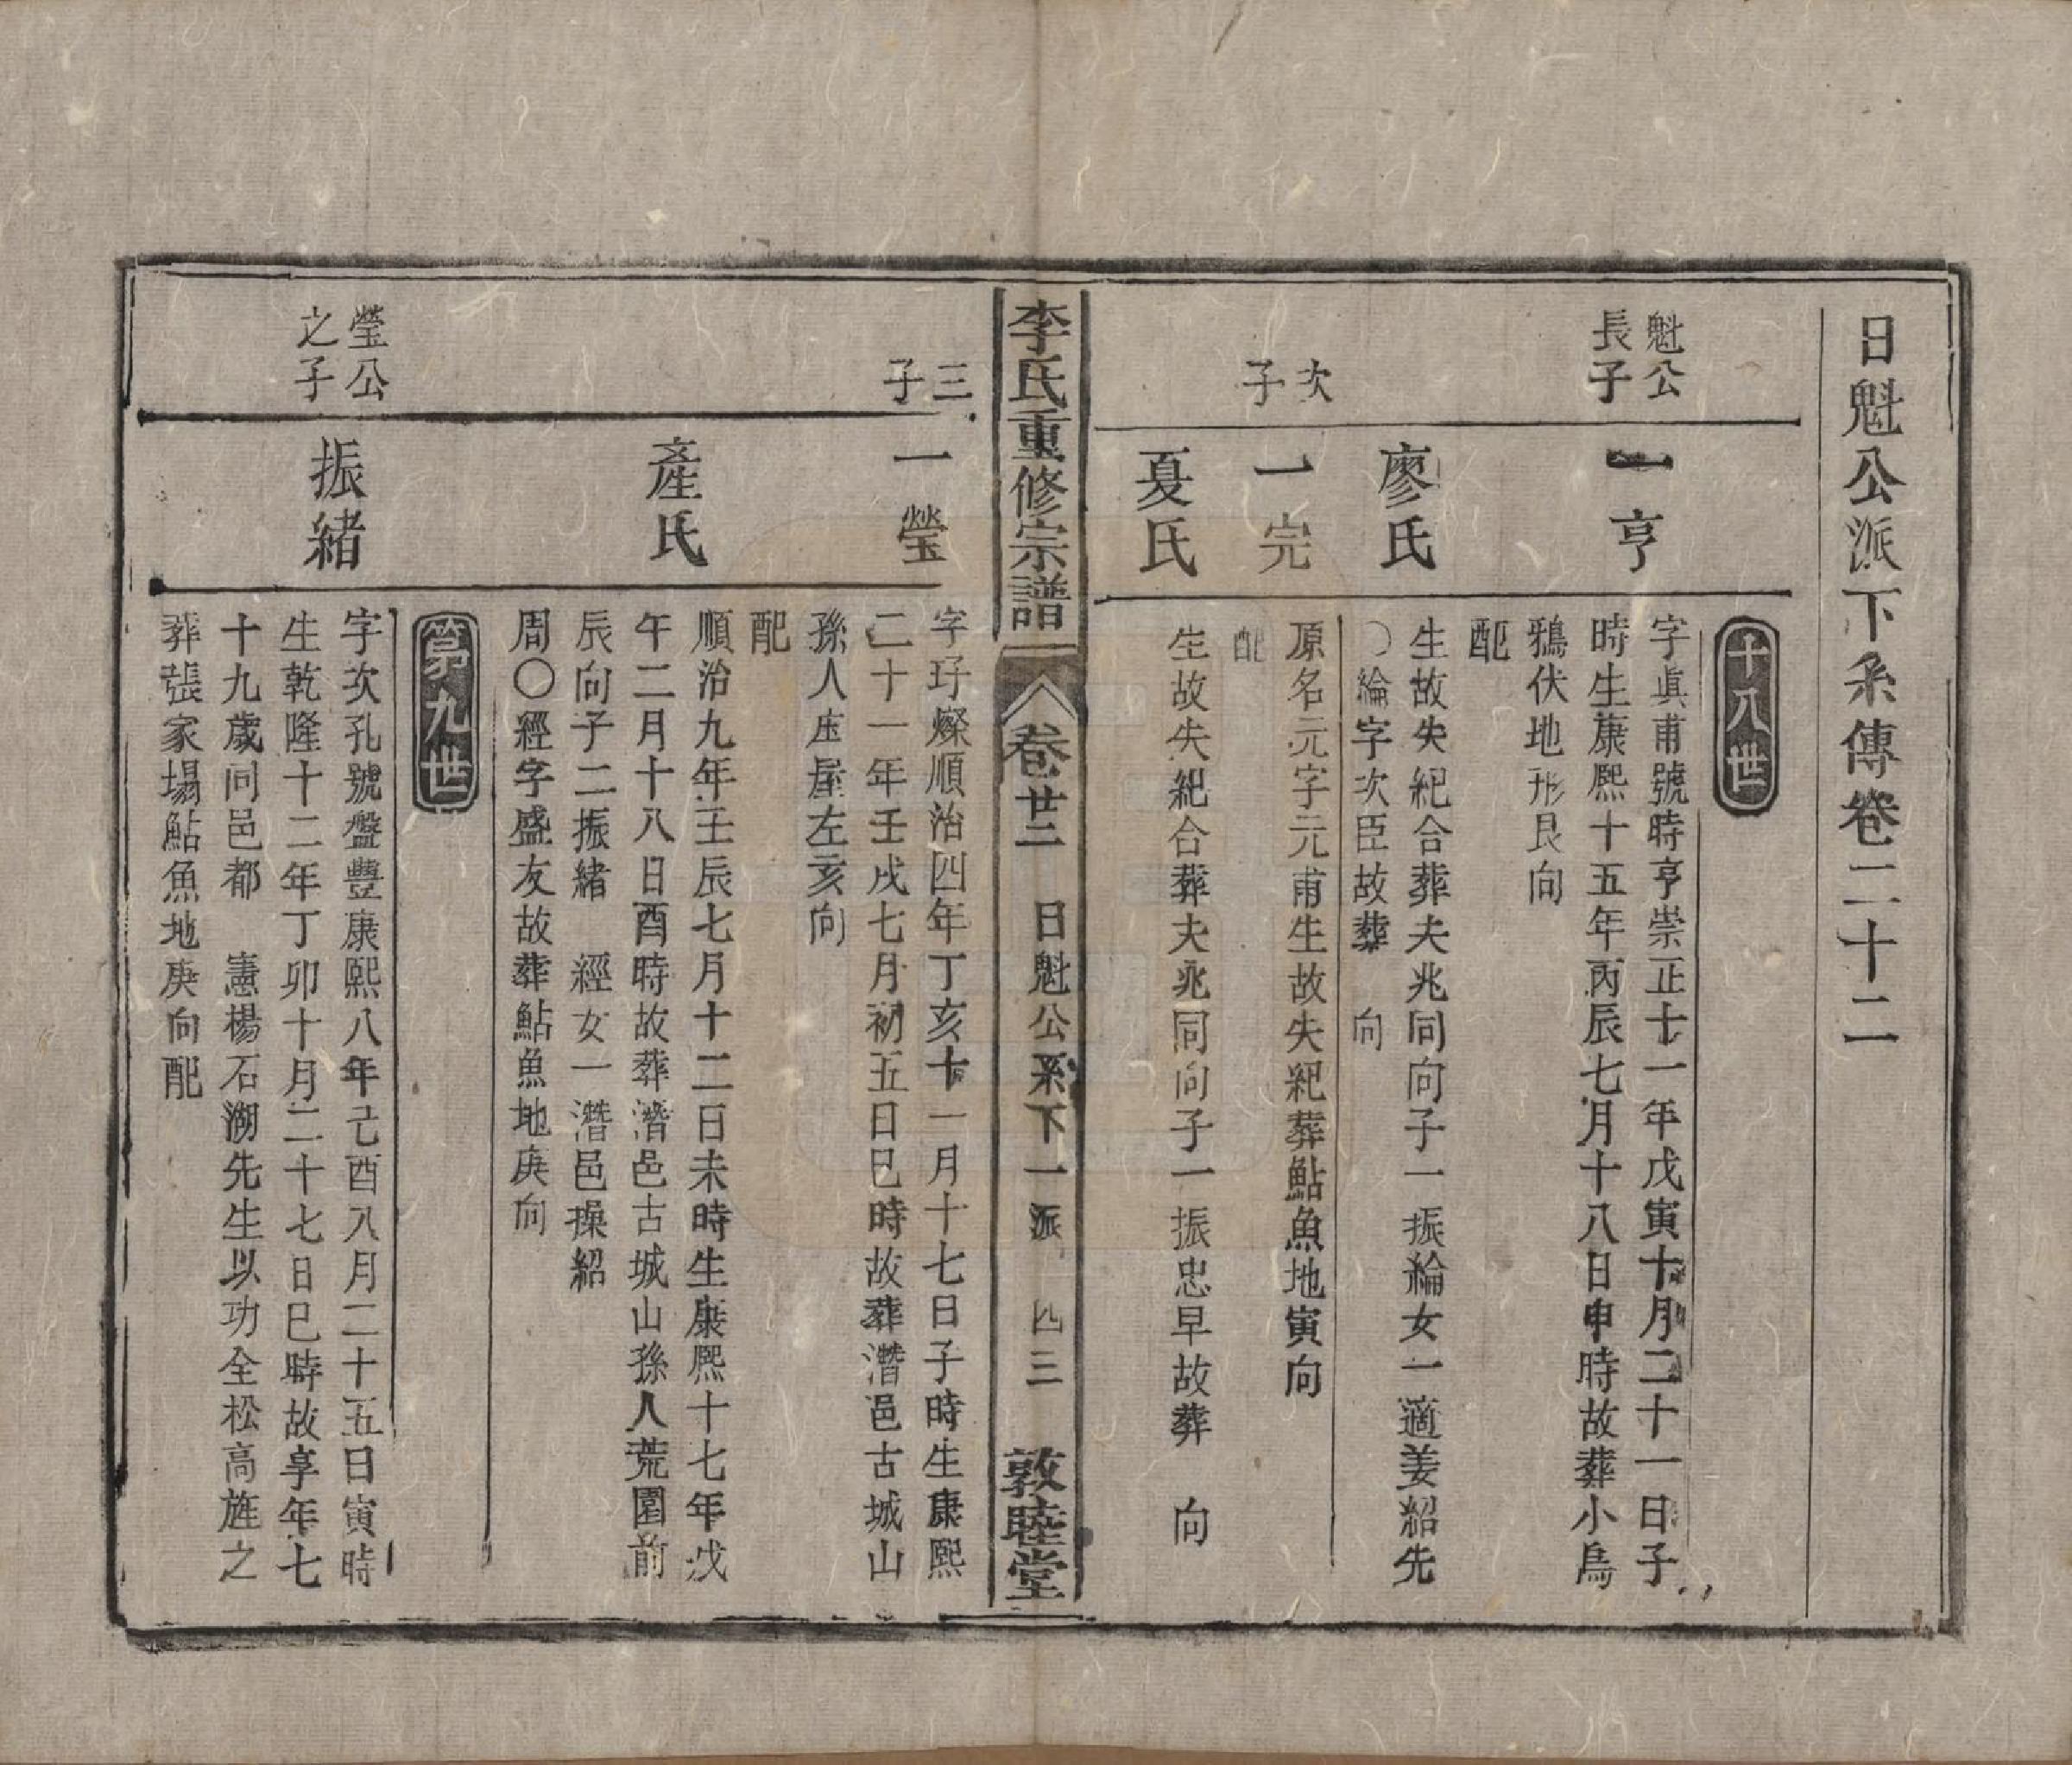 日魁公派下系傳卷二十二
十八世
魁公
長子
一亨
字眞甫號時亨崇正十一年戊寅十月二十一日子
時生康熙十五年丙辰七月十八日申時故葬小烏
鴉伏地形艮向
配
廖氏
生故失紀合葬夫兆同向子一振綸女一適姜紹先
〇綸字次臣故葬　向
次
子
一完
原名元字元甫生故失紀葬鮎魚地寅向
配
夏氏
生故失紀合葬夫兆同向子一振忠早故葬　向
李氏重修宗譜
卷廿二　日魁公系下一派　四三　敦睦堂
三
子
一瑩
字玗燦順治四年丁亥十一月十七日子時生康熙
二十一年壬戌七月初五日巳時故葬潛邑古城山
孫人庄屋左亥向
配
產氏
順治九年壬辰七月十二日未時生康熙十七年戊
午二月十八日酉時故葬潛邑古城山孫人荒園前
辰向子二振緒　經女一潛邑操紹
周〇經字盛友故葬鮎魚地庚向
第九世
瑩公
之子
振緒
字次孔號盤豐康熙八年己酉八月二十五日寅時
生乾隆十二年丁卯十月二十七日巳時故享年七
十九歲同邑都　憲楊石湖先生以功全松高旌之
葬張家場鮎魚地庚向配